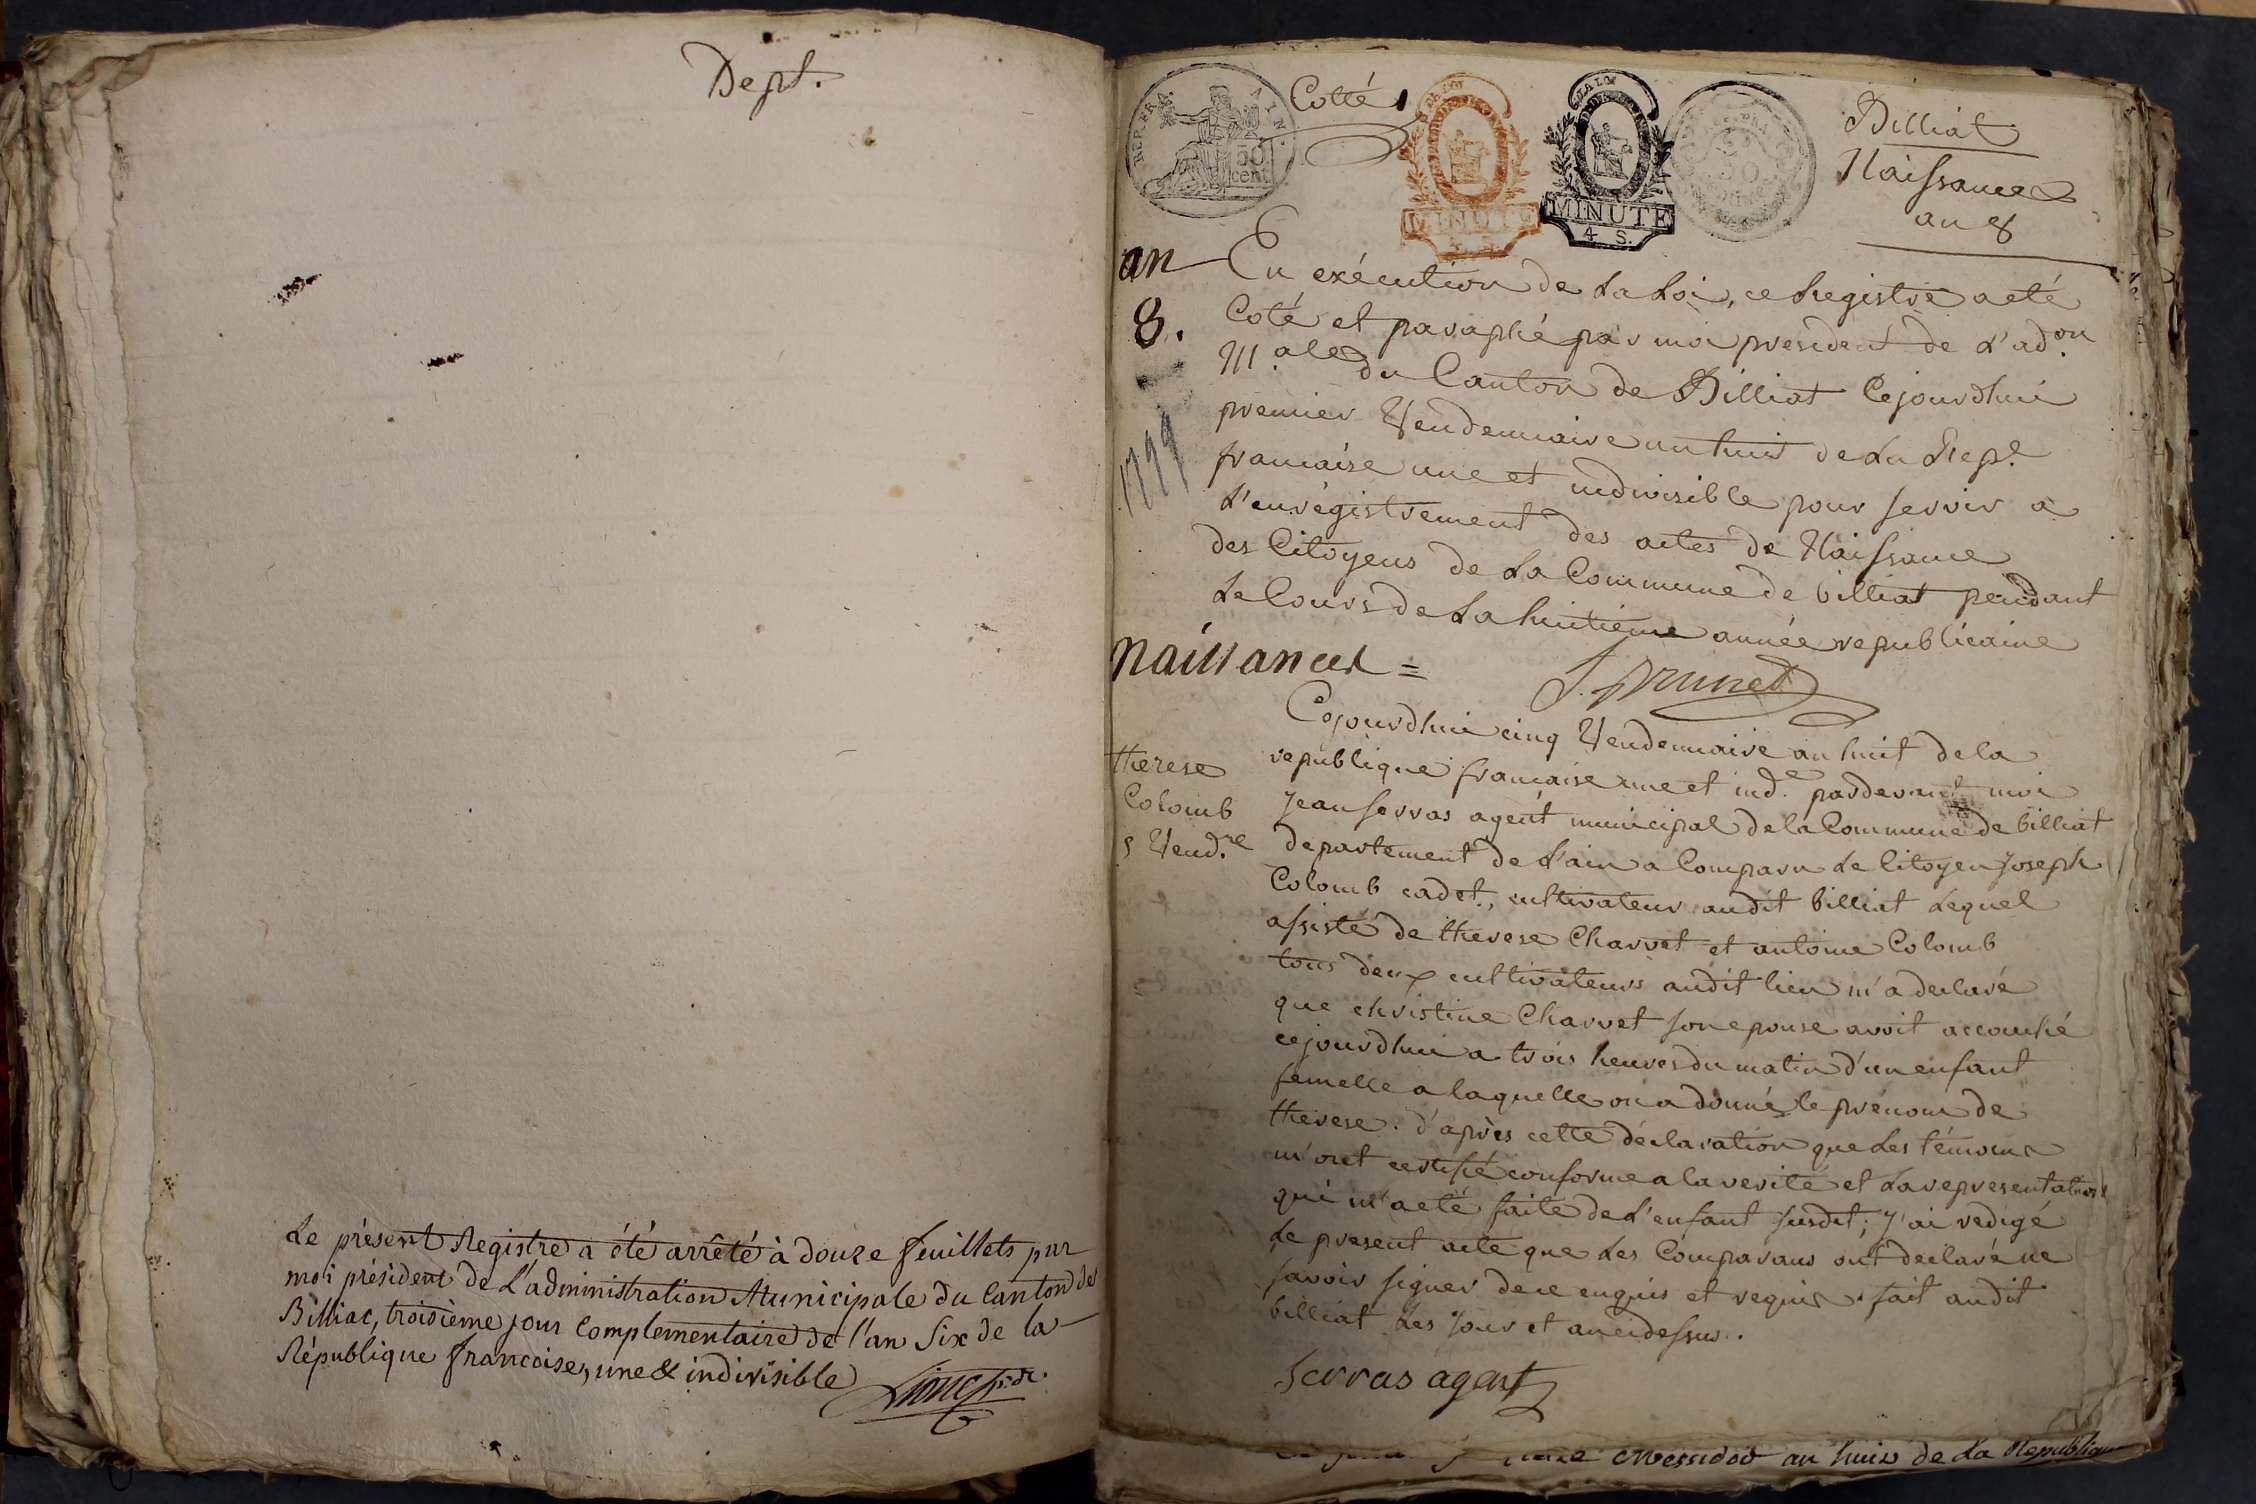 Dept.
Le présent Registre a été arrêté à douze feuillets par
moi président de L'administration Municipale du Canton de
Billiac, troisième jour Complementaire de l'an Six de la
République francoise, une & indivisible
REP. FRA. AIN.
50
cent
Cotté 1
LA LOI
MINUTE
LA LOI
MINUTE
4 S.
Billiat
Naissances
an 8
an
8.
1799
En exécution de La Loi, ce Registre a eté
Coté et paraphé par moi president de L'ad.on
M.ale du Canton de Billiat Cejourdhui
premier Vendemiaire an huit de La Rep.e
francaise une et indivisible pour servir a
L'enrégistrement des actes de Naissance
des Citoyens de La Commune de billiat pendant
Le Cours de La huitième année republicaine
J. prunet
naissances =
therese
Colomb
5 Vend.re
Cejourdhui cinq Vendemiaire an huit de la
republique francaise une et ind.e pardevant moi
Jean Serras agent municipal de la Commune de billiat
departement de L'ain a Comparu Le Citoyen Joseph
Colomb cadet, cultivateur audit billiat Lequel
assisté de therese Charvet et antoine Colomb
tous deux cultivateurs audit lieu m'a declaré
que christine Charvet son epouse avoit accouché
cejourdhui a trois heures du matin d'un enfant
femelle a laquelle on a donné le prénom de
therese. d'après cette déclaration que Les témoins
m'ont certifié conforme a la verité et La representation
qui m'a eté faite de L'enfant susdit; J'ai redigé
Le present acte que Les Comparans ont declaré ne
savoir signer de ce enquis et requis. fait audit
billiat Les Jour et an cidessus.
Serras agent
messidor an huit de La Republique